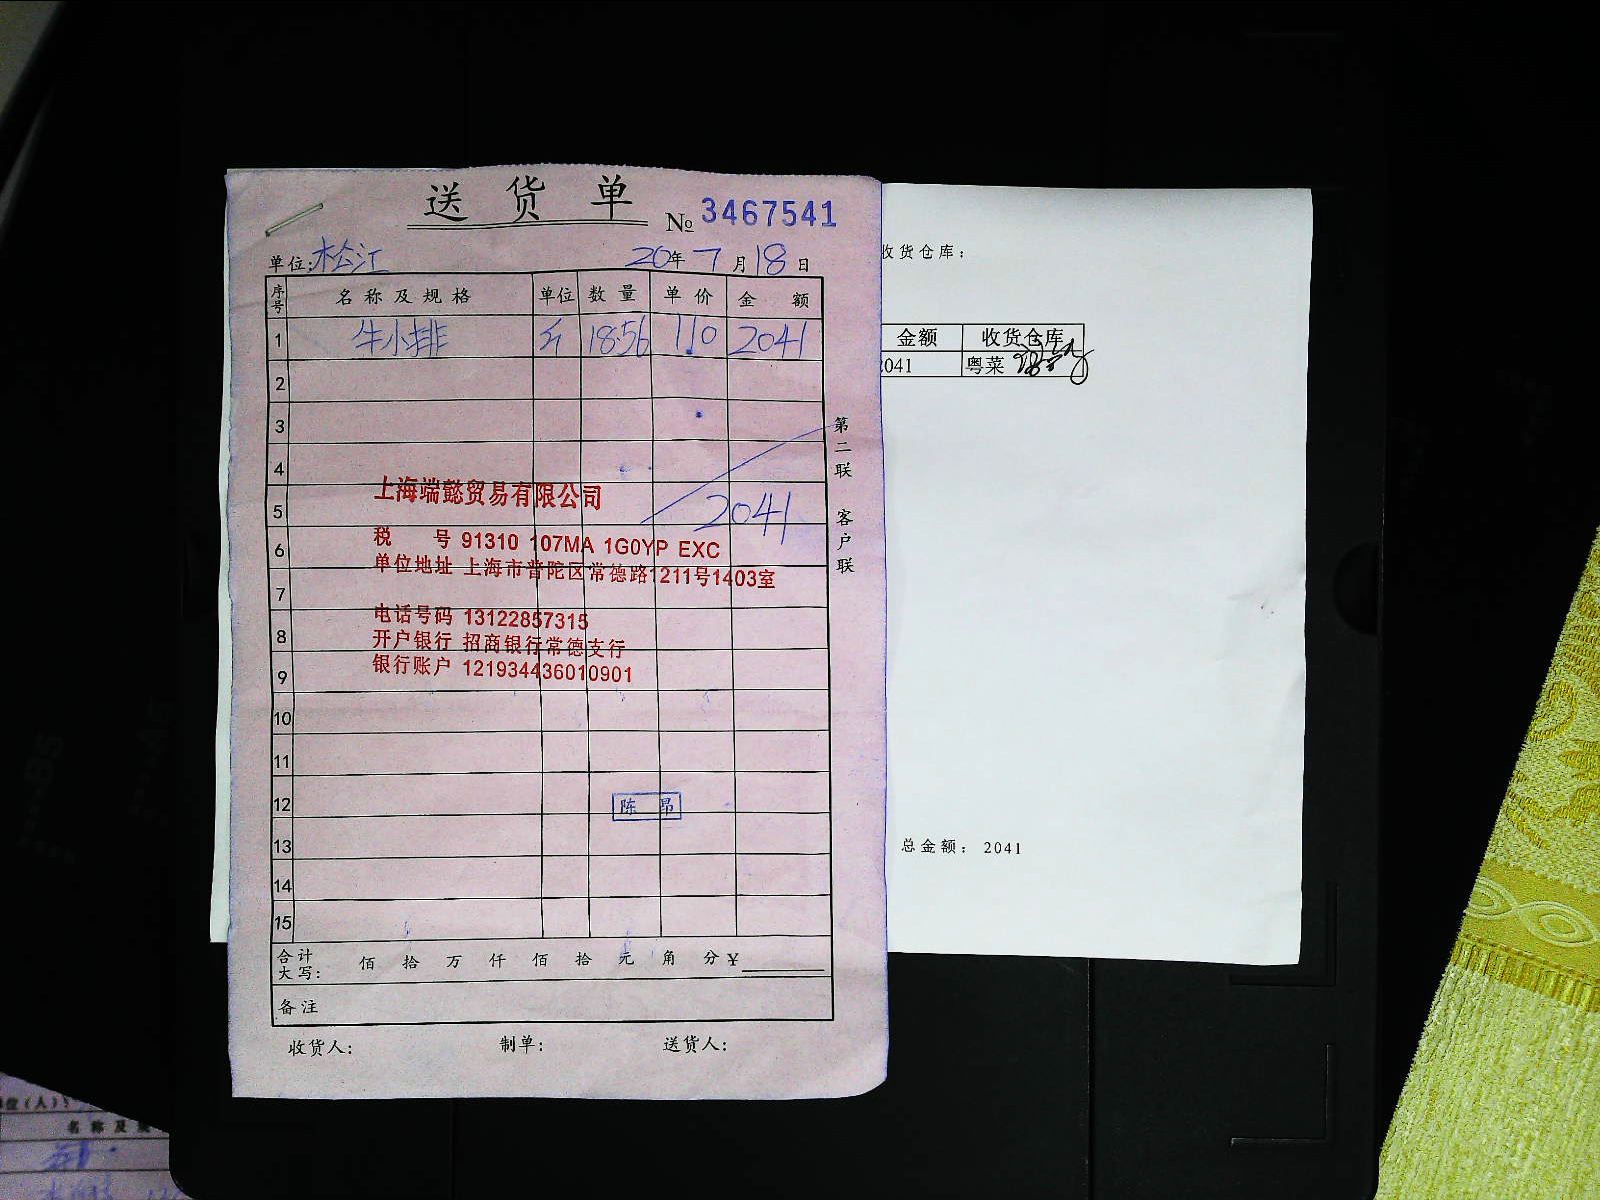 送货单
№ 3467541
单位:松江 20年7月18日
序号 名称及规格 单位 数量 单价 金额
1 牛小排 斤 18.56 110 2041
2
3
4
5 2041
6
7
8
9
10
11
12
13
14
15
上海端懿贸易有限公司
税 号 91310 107MA 1G0YP EXC
单位地址 上海市普陀区常德路1211号1403室
电话号码 13122857315
开户银行 招商银行常德支行
银行账户 121934436010901
陈 昂
合计大写: 佰 拾 万 仟 佰 拾 元 角 分 ¥
备注
收货人: 制单: 送货人:
第二联 客户联
收货仓库:
金额 收货仓库
2041 粤菜
总金额: 2041
位(人):
名称及规